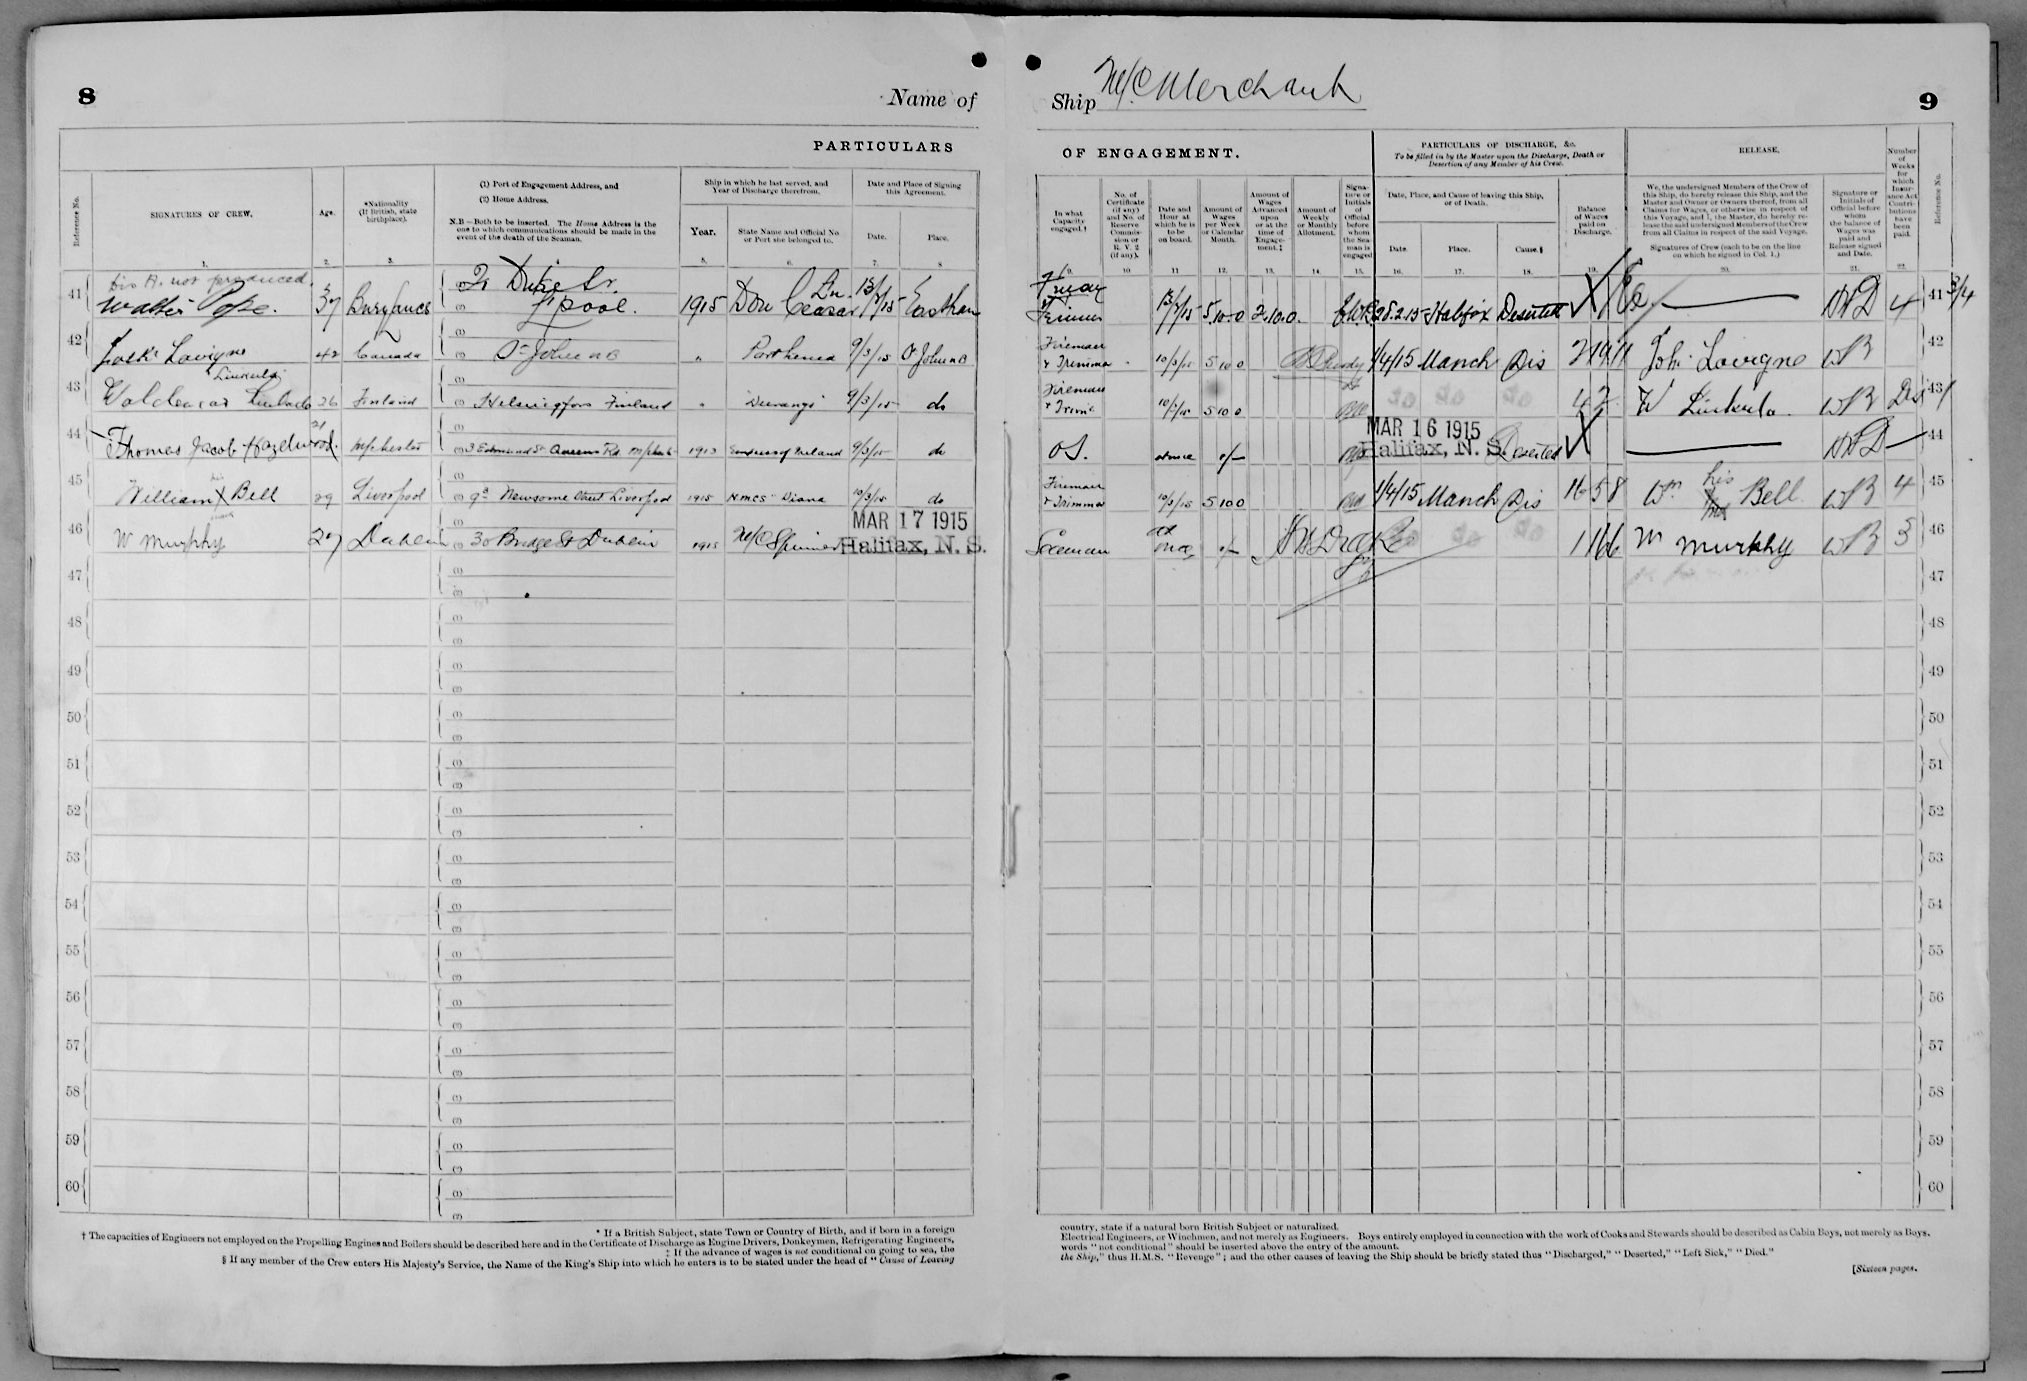 8
Name of
Ship M/C Merchant
9
PARTICULARS
OF ENGAGEMENT.
Reference No.
SIGNATURES OF CREW.
Age.
*Nationality
(If British, state
birthplace).
(1) Port of Engagement Address, and
(2) Home Address.
N.B—Both to be inserted. The Home Address is the
one to which communications should be made in the
event of the death of the Seaman.
Ship in which he last served, and
Year of Discharge therefrom.
Year.
State Name and Official No
or Port she belonged to.
Date and Place of Signing
this Agreement.
Date.
Place.
In what
Capacity
engaged.†
No. of
Certificate
(if any)
and No. of
Reserve
Commis-
sion or
R. V. 2
(if any).
Date and
Hour at
which he is
to be
on board.
Amount of
Wages
per Week
or Calendar
Month.
Amount of
Wages
Advanced
upon
or at the
time of
Engage-
ment.‡
Amount of
Weekly
or Monthly
Allotment.
Signa-
ture or
Initials
of
Official
before
whom
the Sea-
man is
engaged
PARTICULARS OF DISCHARGE, &c.
To be filled in by the Master upon the Discharge, Death or
Desertion of any Member of his Crew.
Date, Place, and Cause of leaving this Ship,
or of Death.
Date.
Place.
Cause.§
Balance
of Wages
paid on
Discharge.
RELEASE.
We, the undersigned Members of the Crew of
this Ship, do hereby release this Ship, and the
Master and Owner or Owners thereof, from all
Claims for Wages, or otherwise in respect of
this Voyage, and I, the Master, do hereby re-
lease the said undersigned Members of the Crew
from all Claims in respect of the said Voyage.
Signatures of Crew (each to be on the line
on which he signed in Col. 1.)
Signature or
Initials of
Official before
whom
the balance of
Wages was
paid and
Release signed
and Date.
Number
of
Weeks
for
which
Insur-
ance Act
Contri-
butions
have
been
paid.
Reference No.
1. 2. 3. 5. 6. 7. 8 9. 10 11 12. 13. 14. 15. 16. 17. 18. 19. 20. 21. 22.
Dis A. not produced.
41 Walter Pope. 37 Duke St. L'pool. 1915 Don Ceasar Eastham
5.10.0 2.10.0. 28.2.15 Halifax Deserted 4 41 3/4
42 Lavigne 42 Canada St John NB " Parthenia 9/3/15 St John NB
Fireman & Trimmer 10/3/15 5 10 0 1/4/15 Manch Dis Lavigne WB 42
Linkula
43 26 Finland Helsingfors Finland " 9/3/15 do
Fireman 10/3/15 5 10 0 do do do W Linkula. WB 43
44 Thomas Jacob Hazelwood. 21 M/chester 3 Edmund St Queens Rd M/chester 1913 Empress of Ireland 9/3/15 do
OS. MAR 16 1915 Halifax, N. S. Deserted 44
45 William X Bell 29 Liverpool Newsome Street Liverpool 1915 HMCS "Diana" 10/3/15 do
Fireman & Trimmer 10/3/15 5 10 0 1/4/15 Manch Dis 16 5 8 Wm his X Bell WB 4 45
46 W Murphy 27 Dublin 30 Bridge St Dublin 1915 M/C Spinner MAR 17 1915 Halifax, N. S.
at once do do do Murphy WB 3 46
47 47
48 48
49 49
50 50
51 51
52 52
53 53
54 54
55 55
56 56
57 57
58 58
59 59
60 60
* If a British Subject, state Town or Country of Birth, and if born in a foreign
country, state if a natural born British Subject or naturalized.
† The capacities of Engineers not employed on the Propelling Engines and Boilers should be described here and in the Certificate of Discharge as Engine Drivers, Donkeymen, Refrigerating Engineers,
Electrical Engineers, or Winchmen, and not merely as Engineers. Boys entirely employed in connection with the work of Cooks and Stewards should be described as Cabin Boys, not merely as Boys.
‡ If the advance of wages is not conditional on going to sea, the
words "not conditional" should be inserted above the entry of the amount.
§ If any member of the Crew enters His Majesty's Service, the Name of the King's Ship into which he enters is to be stated under the head of "Cause of Leaving
the Ship," thus H.M.S. "Revenge"; and the other causes of leaving the Ship should be briefly stated thus "Discharged," "Deserted," "Left Sick," "Died."
[Sixteen pages.